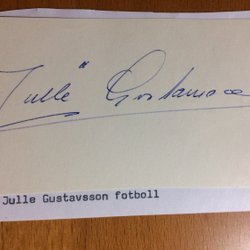 "Julle" Gustavsson
Julle Gustavsson fotboll